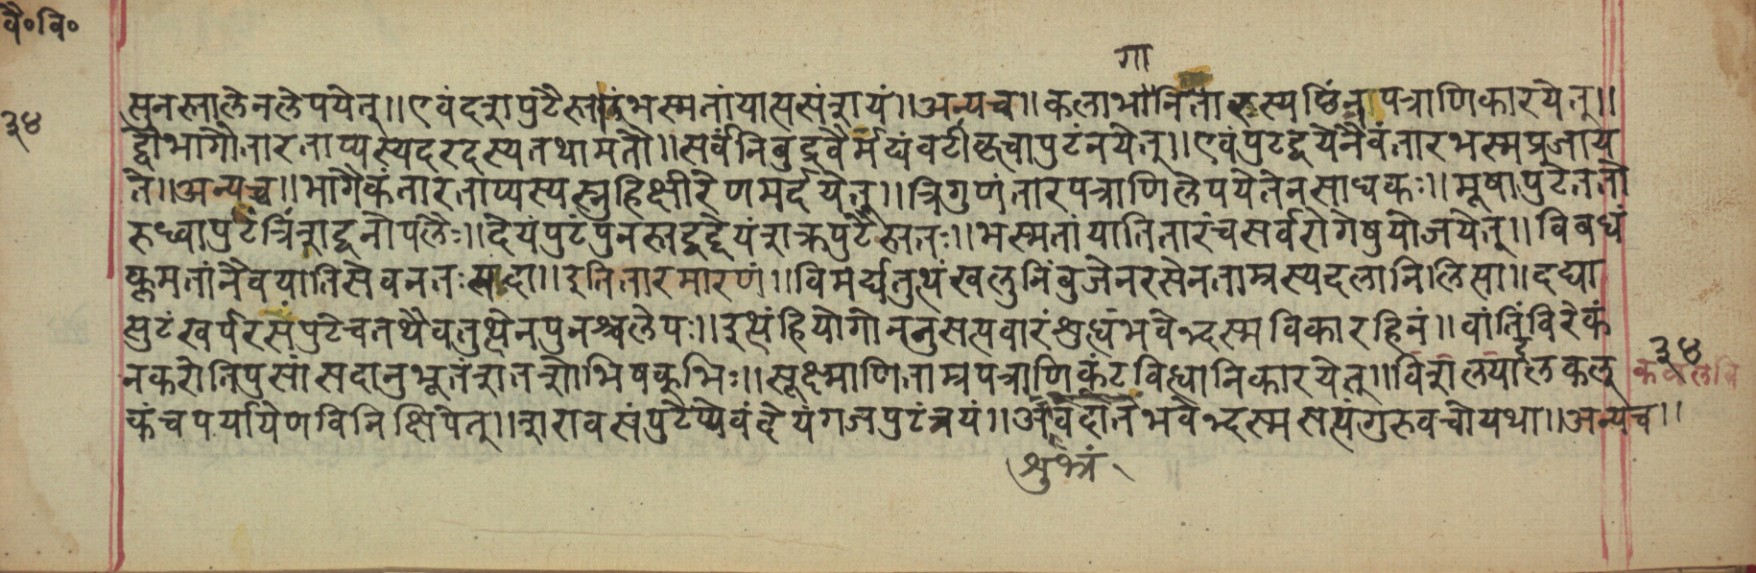 वै॰ वि॰
गा
सुनस्तालेनलेपयेत्॥एवंदशपुटैस्तारंभस्मतांयात्यसंशयं॥अन्यच्च॥कलाभानितारस्य पत्राणिकारयेत्॥
३४
द्वौभागौतारताप्यस्यदरदस्यतथामतौ॥सर्वंनिंबुद्रवैर्मर्द्यंवटीकृत्वापुटंनयेत्॥एवंपुटद्वयेनैवंतारभस्मप्रजाय
ते॥अन्यच्च॥भागैकंतारताप्यस्यस्नुहिक्षीरेणमर्दयेत्॥त्रिगुणंतारपत्राणिलेपयेतेनसाधकः॥मूषापुटेततो
रुध्वापुटंत्रिंशद्वनोपलैः॥देयंपुटंपुनस्तद्वद्देयंशक्रपुटैस्ततः॥भस्मतांयातितारंचसर्वरोगेषुयोजयेत्॥विबधं
कृमतांनैवयातिसेवनतःसदा॥इतितारमारणं॥विमर्द्यतुत्थंखलुनिंबुजेनरसेनताम्रस्यदलानिलिप्सा॥दद्या
त्पुटंखर्परसंपुटेचतथैवतुत्थेनपुनश्चलेपः॥इत्थंहियोगोननुसप्तवारंशुध्यंभवेद्भस्मविकारहिनं॥वांतिंविरेकं
नकरोतिपुसांसदानुभूतंशतशोभिषक्भिः॥सूक्ष्माणिताम्रपत्राणिकंटविध्वानिकारयेत्॥ कलू
३४
कंचपर्यायेणविनिक्षिपेत्॥शरावसंपुटेप्येवंदेयंगजपुटंत्रयं॥अवदातंभवेद्भस्मसत्यंगुरुवचोयथा॥अन्यच्च॥
शुभ्रं